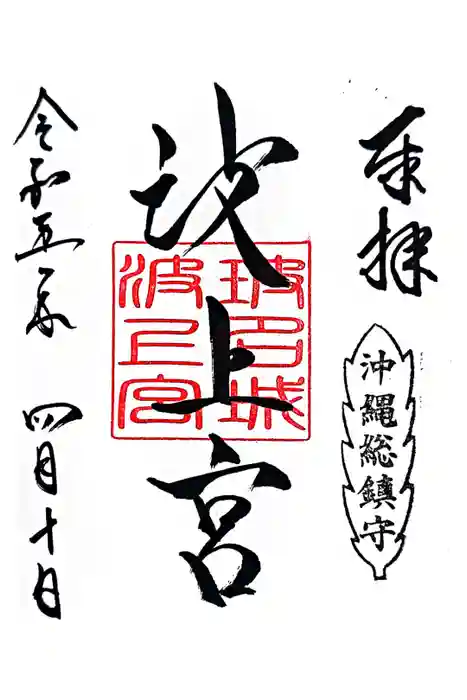 奉拝
沖縄総鎮守
波上宮
玻名城
波上宮
令和五年 四月十日